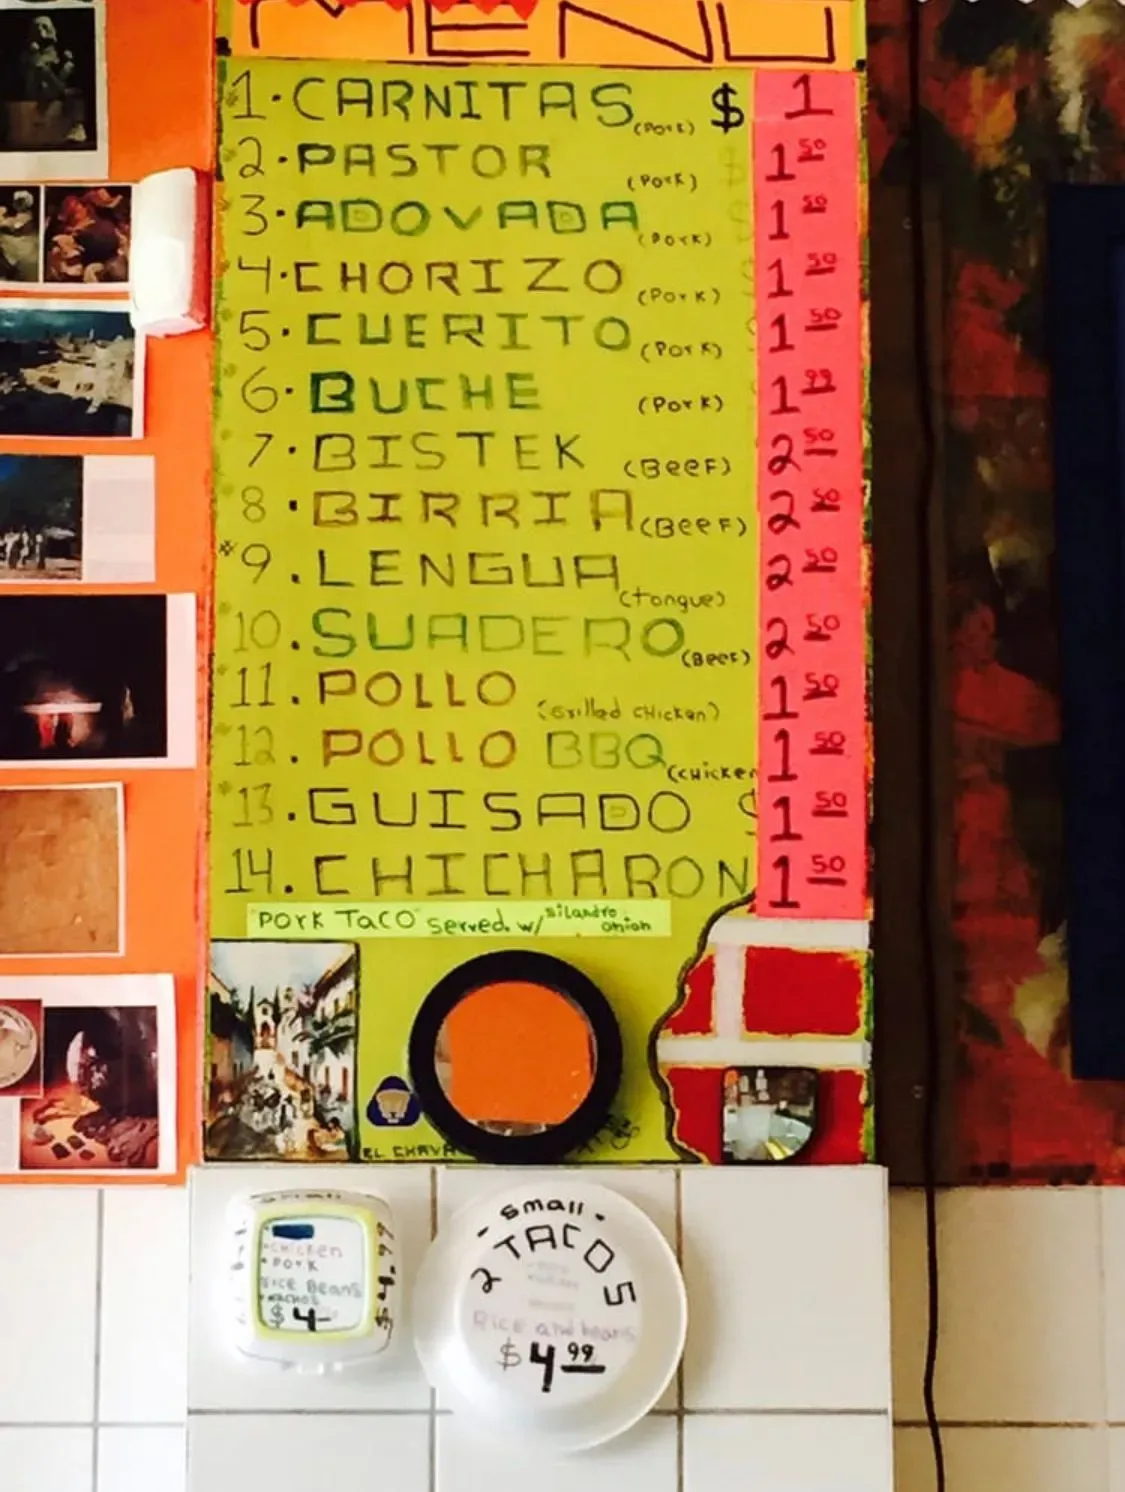 MENU
1. CARNITAS (Pork) $ 1
2. PASTOR (Pork) $ 1 50
3. ADOVADA (Pork) $ 1 50
4. CHORIZO (Pork) 1 50
5. CUERITO (Pork) 1 50
6. BUCHE (Pork) 1 99
7. BISTEK (BeeF) 2 50
8. BIRRIA (BeeF) 2 50
*9. LENGUA (tongue) 2 50
10. SUADERO (BeeF) 2 50
11. POLLO (Grilled CHicken) 1 50
12. POLLO BBQ (CHicken 1 50
13. GUISADO $ 1 50
14. CHICHARON 1 50
PORK TACO served. w/ silandro onion
EL CHAVA
• CHicken
• PORK
RICE BEANS
• NACHOS
$ 4
$4.99
- Small -
2 TACOS
Rice and beans
$ 4 99